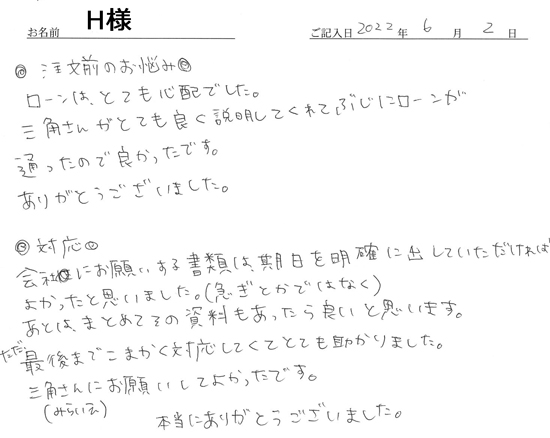 お名前 H様 ご記入日 2022 年 6 月 2 日
◎ 注文前のお悩み◎
ローンは、とても心配でした。
三角さんがとても良く説明してくれて、ぶじにローンが
通ったので良かったです。
ありがとうございました。
◎ 対応◎
会社にお願いする書類は、期日を明確に出していただければ
よかったと思いました。(急ぎとかではなく)
あとは、まとめてその資料もあったら良いと思います。
ただ、最後までこまかく対応してくてとても助かりました。
三角さんにお願いしてよかったです。
(みらい工)
本当にありがとうございました。